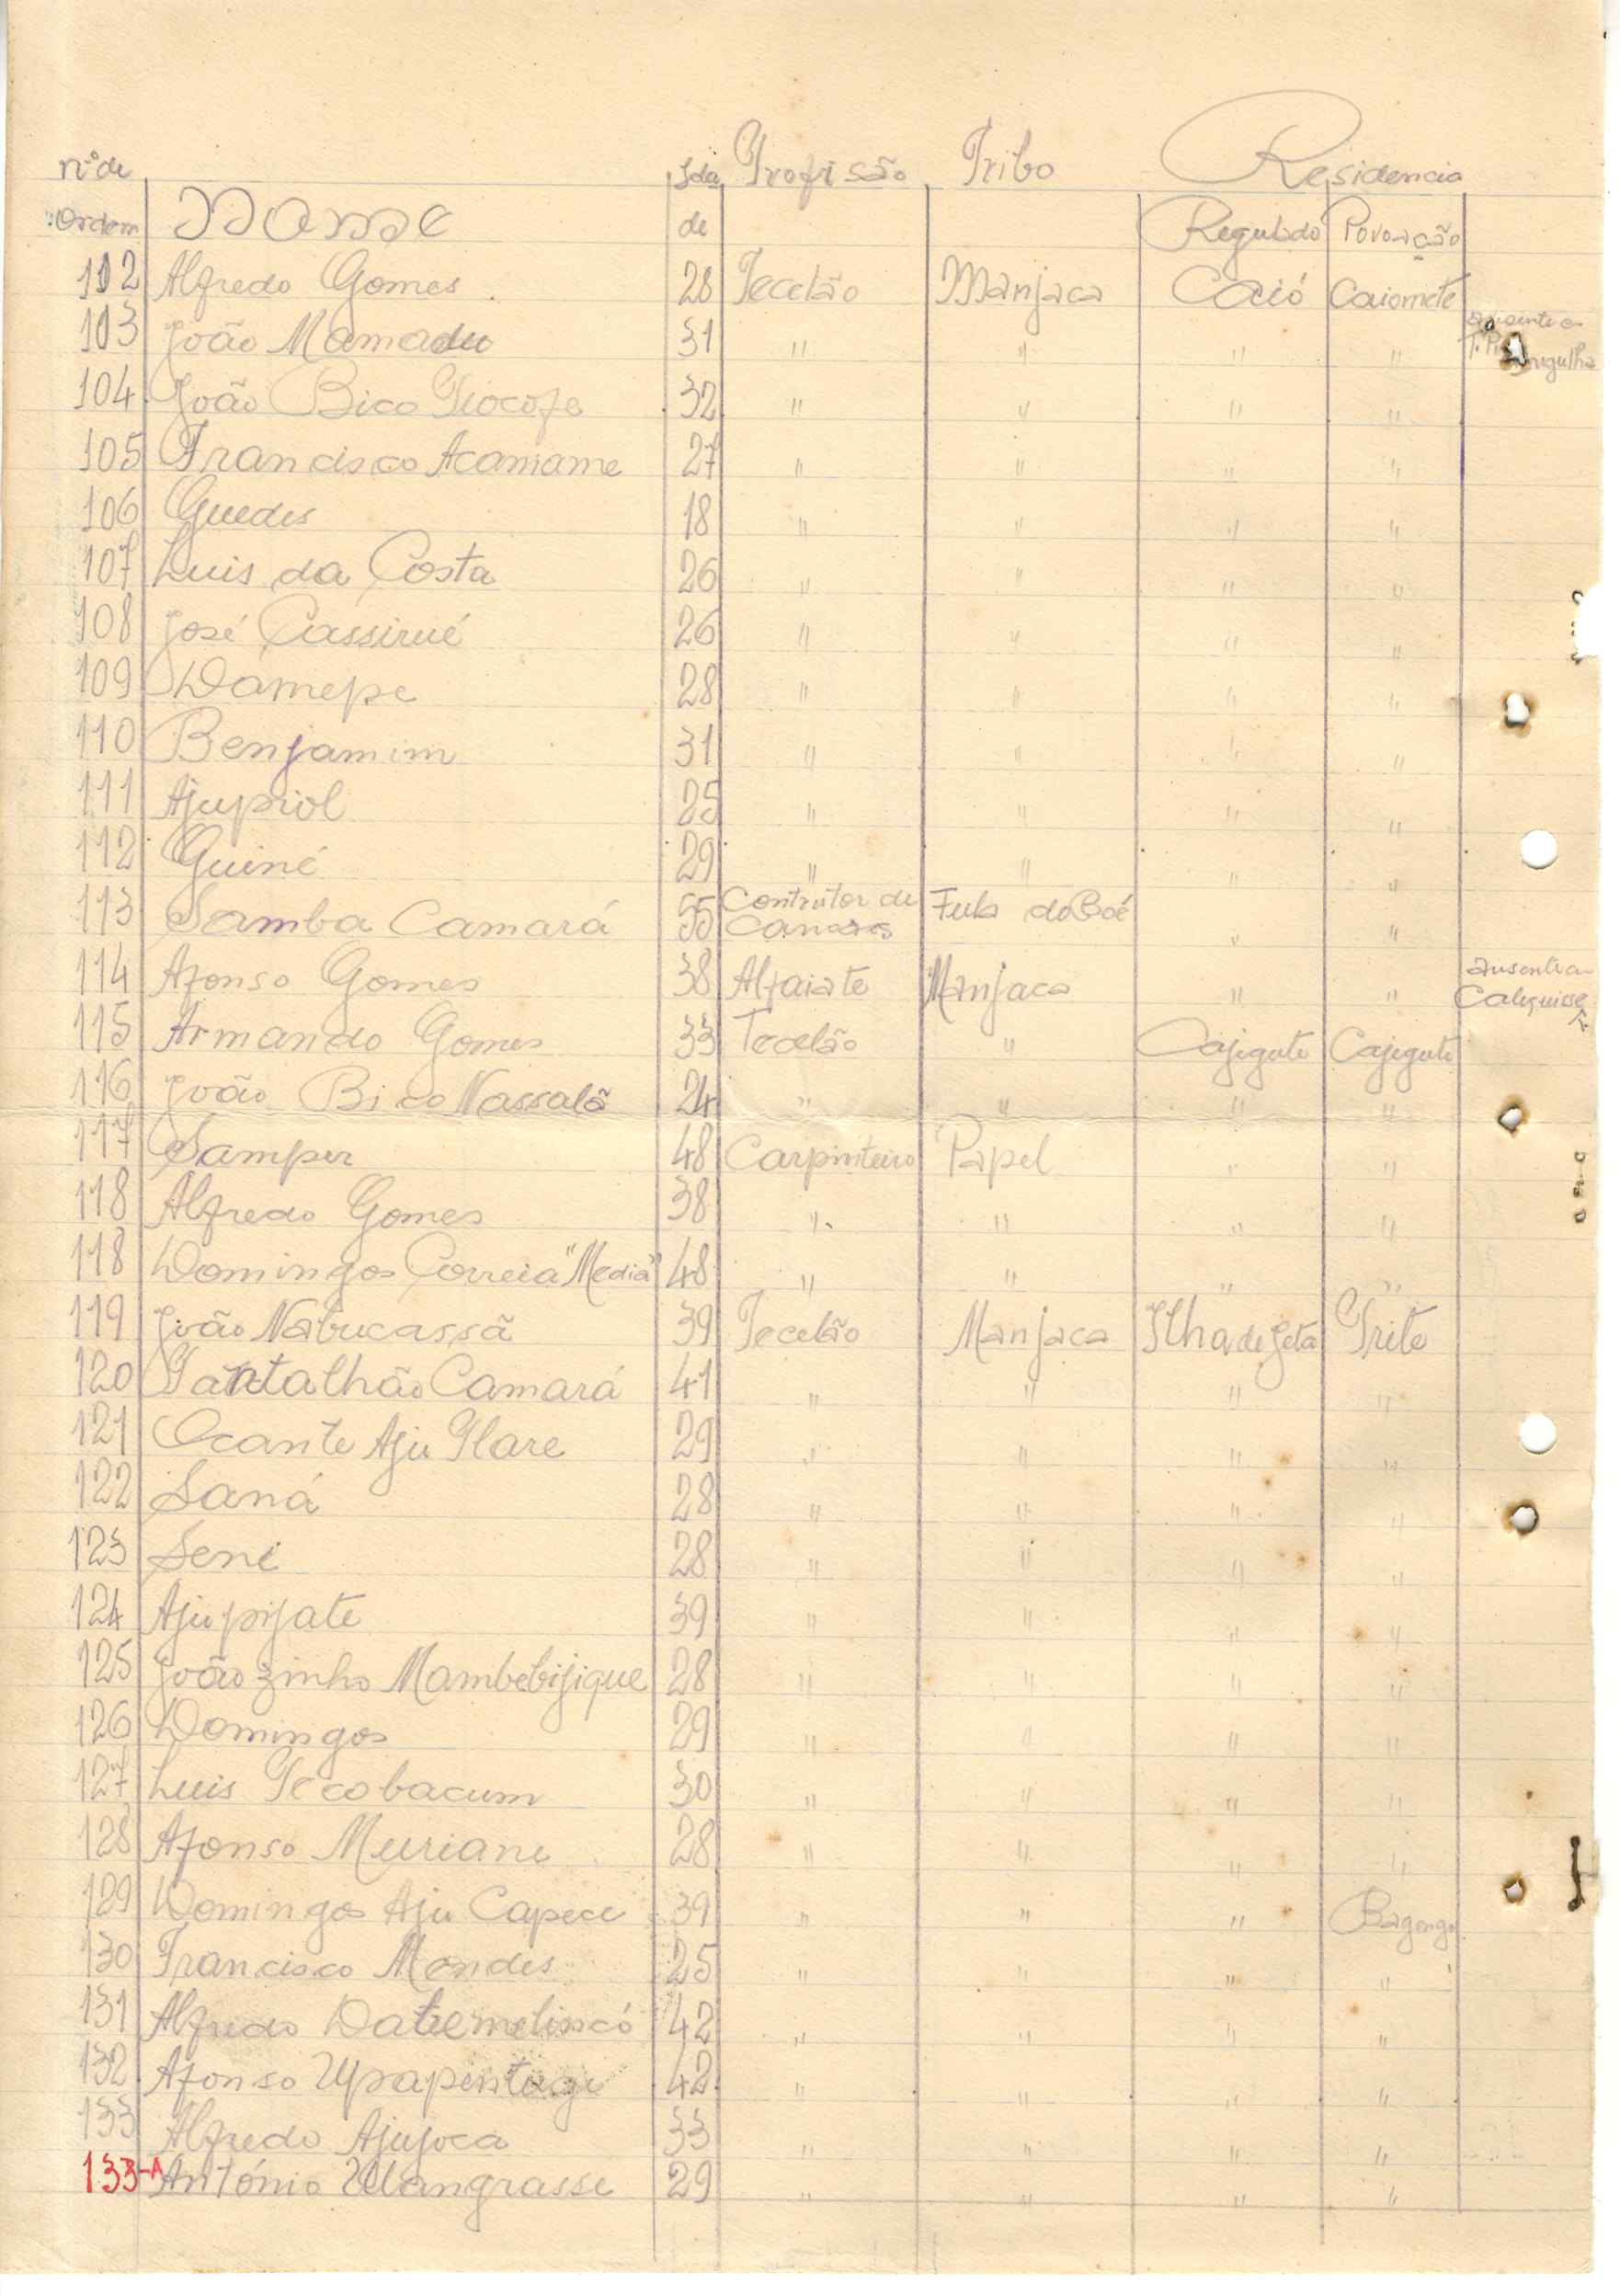 nº de Ida Profisão Tribo Residencia
Ordem Nome de Regulado Povoação
102 Alfredo Gomes 28 Tecelão Manjaca Caió Caiomete
103 João Mamadu 31 " " " " ausente
104 João Bico Piocofe 32 " " " "
105 Francisco Acamame 27 " " " "
106 Guedes 18 " " " "
107 Luis da Costa 26 " " " "
108 José Cassirué 26 " " " "
109 Damepe 28 " " " "
110 Benjamim 31 " " " "
111 Ajupiol 25 " " " "
112 Guiné 29 " " " "
113 Samba Camará 55 Contrutor de Canoas Fula do Boé " "
114 Afonso Gomes 38 Alfaiate Manjaca " " Calequisse
115 Armando Gomes 33 Tecelão " Cajegute Cajegute
116 João Bico Nassalã 24 " " " "
117 Samper 48 Carpinteiro Papel " "
118 Alfredo Gomes 38 " " " "
118 Domingos Correia "Mediá" 48 " " " "
119 João Nabucassã 39 Tecelão Manjaca Ilha de Jeta Trite
120 Pantalhão Camará 41 " " " "
121 Ocante Aju Plare 29 " " " "
122 Saná 28 " " " "
123 Seni 28 " " " "
124 Ajupijate 39 " " " "
125 Joãozinho Mambebijique 28 " " " "
126 Domingos 29 " " " "
127 Luis Pecobacum 30 " " " "
128 Afonso Muriani 28 " " " "
129 Domingos Aju Capece 39 " " " Bagengo
130 Francisco Mendes 25 " " " "
131 Alfredo 42 " " " "
132 Afonso 42 " " " "
133 Alfredo Ajujoca 33 " " " "
133-A António Ulangrasse 29 " " " "